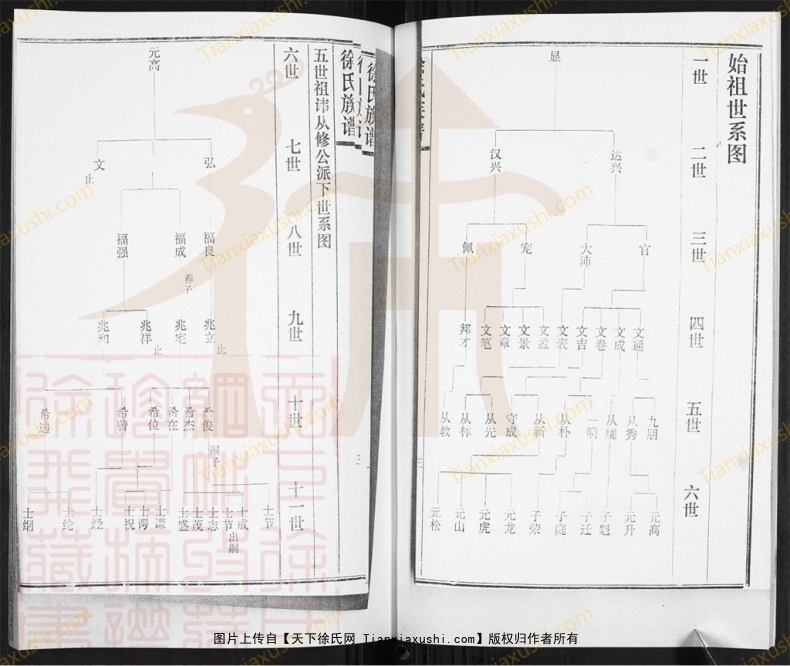 始祖世系图
一世 二世 三世 四世 五世 六世
显
达兴 汉兴
官 大沛 宠 佩
文通 文成 文卷 文吉 文表 文孟 文景 文章 文笔 邦才
九朋 从秀 从耀 一明 从朴 守成 从先 从标 从教
元高 元升 子魁 子迁 子庭 子荣 元龙 元虎 元山 元松
三
徐氏族谱
徐氏族谱
五世祖讳从修公派下世系图
六世 七世 八世 九世 十世 十一世
元高
弘 文 止
福良 福成 福强
养子
兆立 止 兆宅 兆祥 止 兆和
希俊 希杰 希在 希位 希曾
嗣子
士节 士成 士节出嗣 士志 士茂 士盛 士谟 士谔 士祝 士经 士纶 士纲
Tianxiaxushi.com
图片上传自【天下徐氏网 Tianxiaxushi.com】版权归作者所有